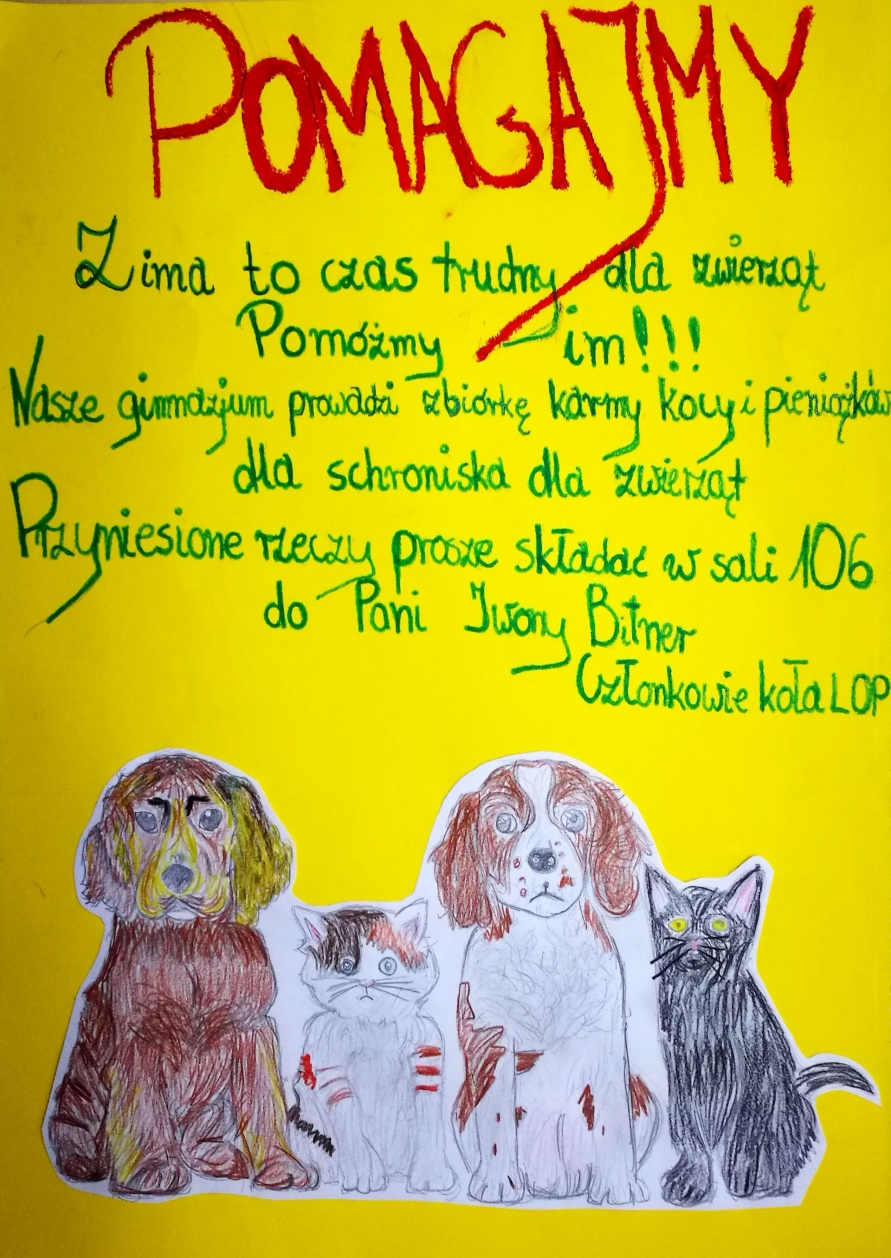 POMAGAJMY
Zima to czas trudny dla zwierząt
Pomóżmy im!!!
Nasze gimnazjum prowadzi zbiórkę karmy kocy i pieniążków
dla schroniska dla zwierząt
Przyniesione rzeczy prosze składać w sali 106
do Pani Iwony Bitner
Członkowie koła LOP